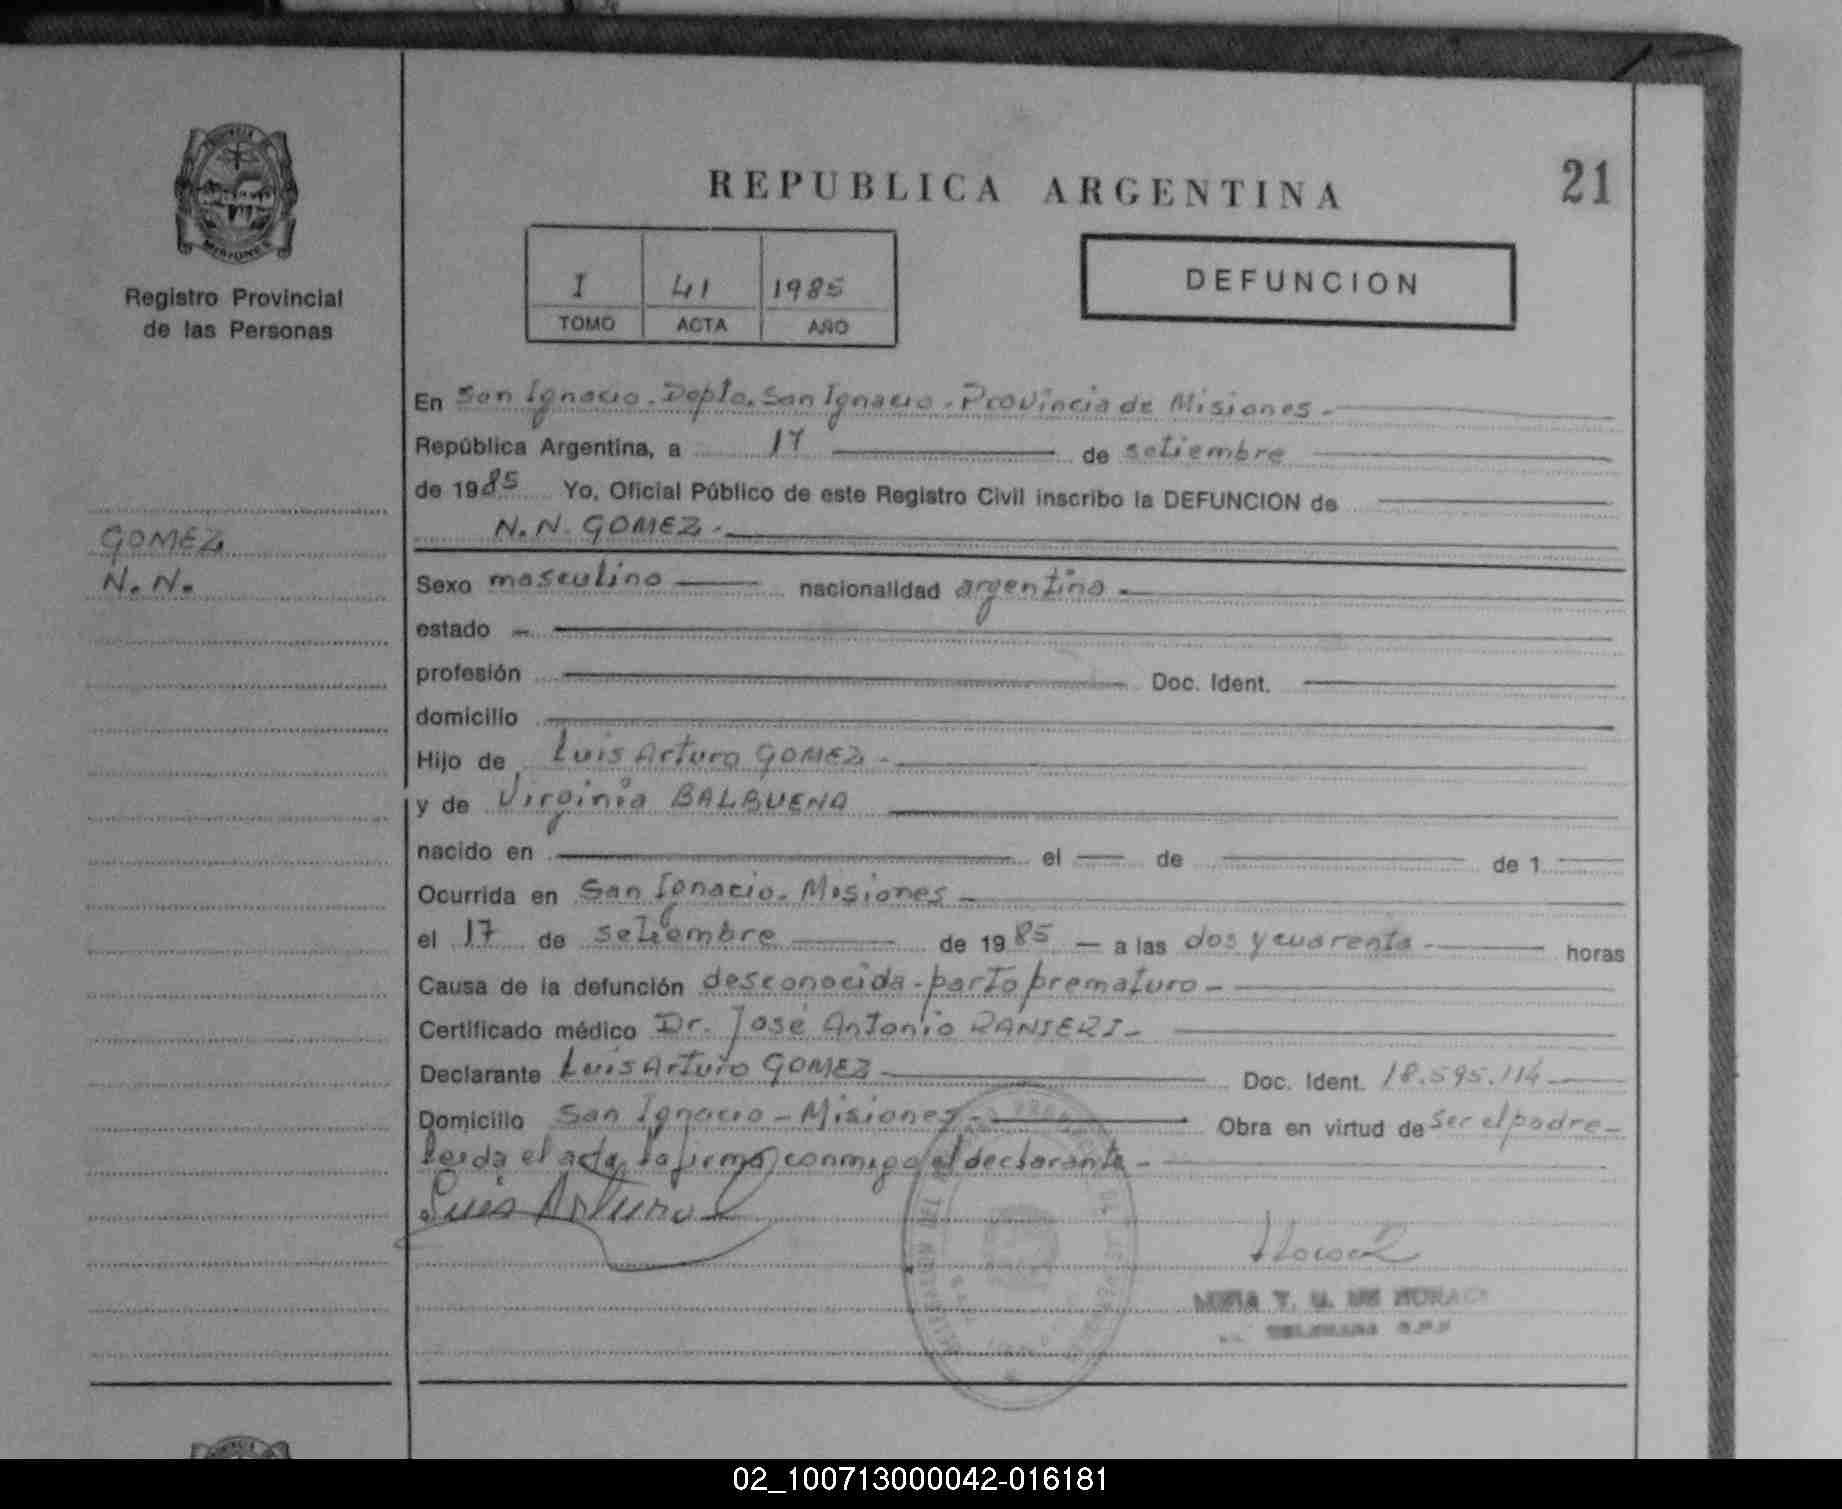 REPUBLICA ARGENTINA
21
MISIONES
Registro Provincial
de las Personas
I 41 1985
TOMO ACTA AÑO
DEFUNCION
GOMEZ
N. N.
En San Ignacio. Dpto. San Ignacio - Provincia de Misiones -
República Argentina, a 17 de setiembre
de 1985 Yo, Oficial Público de este Registro Civil inscribo la DEFUNCION de
N. N. GOMEZ.
Sexo masculino nacionalidad argentina
estado -
profesión Doc. Ident.
domicilio
Hijo de Luis Arturo GOMEZ -
y de Virginia BALBUENA
nacido en el de de 1
Ocurrida en San Ignacio - Misiones -
el 17 de setiembre de 1985 - a las dos y cuarenta - horas
Causa de la defunción desconocida - parto prematuro -
Certificado médico Dr. José Antonio RANIERI -
Declarante Luis Arturo GOMEZ Doc. Ident. 18.595.114
Domicilio San Ignacio - Misiones - Obra en virtud de ser el padre -
Leida el acta, la firma conmigo el declarante -
Luis Arturo
02_100713000042-016181